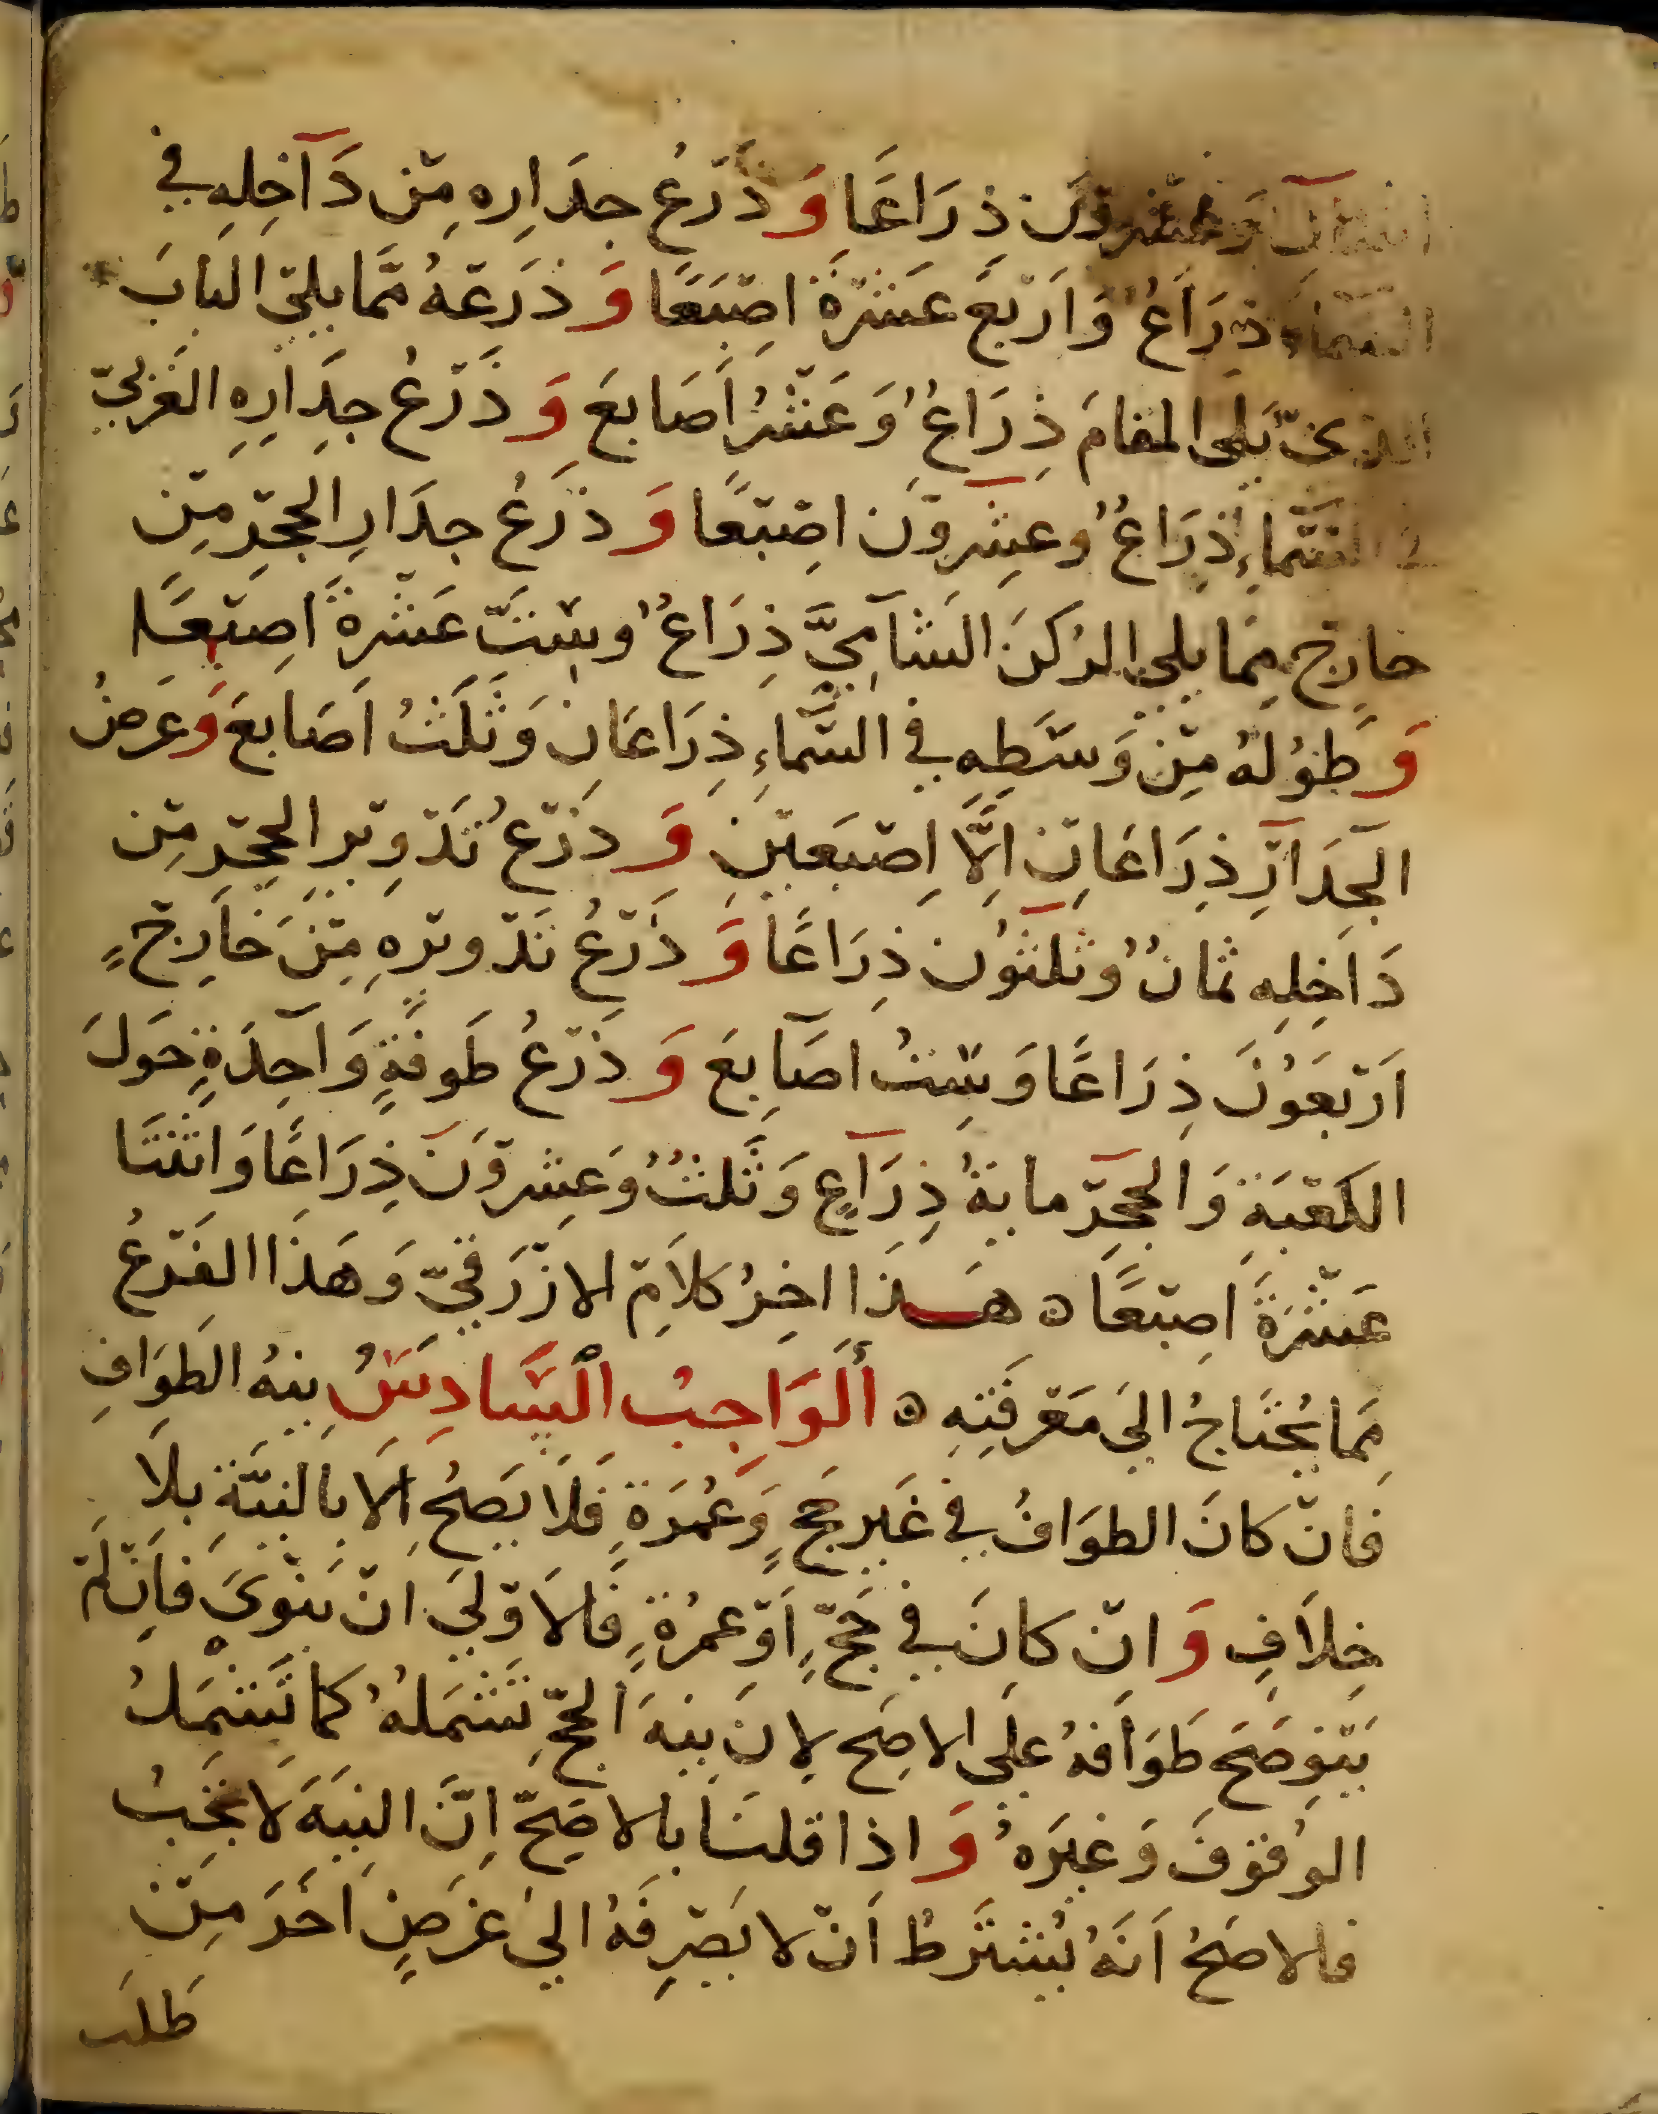 اثنان وعشرون ذِرَاعًا وَذَرْعُ جِدَارِهِ مِنْ دَاخِلِهِ في
السَّمَاءِ ذِرَاعٌ وَارْبَعَ عَشْرَةَ اصْبَعًا وَذَرْعُهُ مِمَّا يلِي البابَ
الذي يَلِى المقامَ ذِرَاعٌ وَعَشْرُ أَصَابِعَ وَذَرْعُ جِدَارِهِ الغَرْبِيّ
في السَّمَاءِ ذِرَاعٌ وعِشرون اصْبَعًا وَذَرْعُ جِدَارِ الحِجْرِ مِنْ
خارِج مِمَا يلي الرُكنَ الشَامِيَّ ذِرَاعٌ وسِتَّ عَشْرَةَ اصِبَعًا
وَطُوْلُهُ مِنْ وَسَطِهِ في السَّمَاءِ ذِرَاعَانِ وَثَلَثُ اصَابعَ وَعَرضُ
الجِدَارِ ذِرَاعَانِ اِلَّا اِصْبَعَيْنِ وَذَرْعُ تَدْوِيْرِ الحِجْرِ مِنْ
دَاخِلِه ثَمانٌ وثلثُوْن ذِرَاعًا وَذَرْعُ تَدْويرِهِ مِنْ خَارِجٍ
اَرْبَعُوْنَ ذِرَاعًا وَسِتُ اصَابِعَ وَذَرْعُ طَوفَةٍ وَاحِدَةٍ حَولَ
الكَعْبَةِ وَالحِجْرِ مايةُ ذِرَاعٍ وَثَلثٌ وَعِشرُوْنَ ذِرَاعًا وَاثْنَتَا
عَشْرَةَ اصِبَعًا ه هَذا اخِرُ كلاَمِ الازْرَقِيّ وَهَذَا الفَرْعُ
مِمَا يُحْتَاجُ اليَ مَعْرِفَتِهِ ه أَلوَاجِبُ السَّادِسُ نيهُ الطوَافِ
فَانْ كانَ الطوَافُ في غَيرِ حَجٍ وَعُمْرَةٍ فَلَا يَصِحُ اِلَا بالنِيَّةِ بلَا
خِلاَفٍ وَانْ كانَ في حَجٍّ اَوْ عمْرَةٍ فَالاَوْلَيَ انْ يَنْوِيَ فاِنْ لَمْ
يَنْوِ صَحَ طَوَافهُ علي الاصَحِ لِانَ نيهَ الحَجِّ تَشْمَلهُ كما تَشْمَلُ
الوُقوْفَ وَغيرَهُ وَاذا قلنَا بالاصَحِّ اِنَّ النيَهَ لَا تجَبُ
فالاصَحُ اَنَهُ يُشْتَرطُ اَنْ لا يَصْرِفَهُ اليَ غرَضٍ اَخَرَ مِنْ
طَلَب